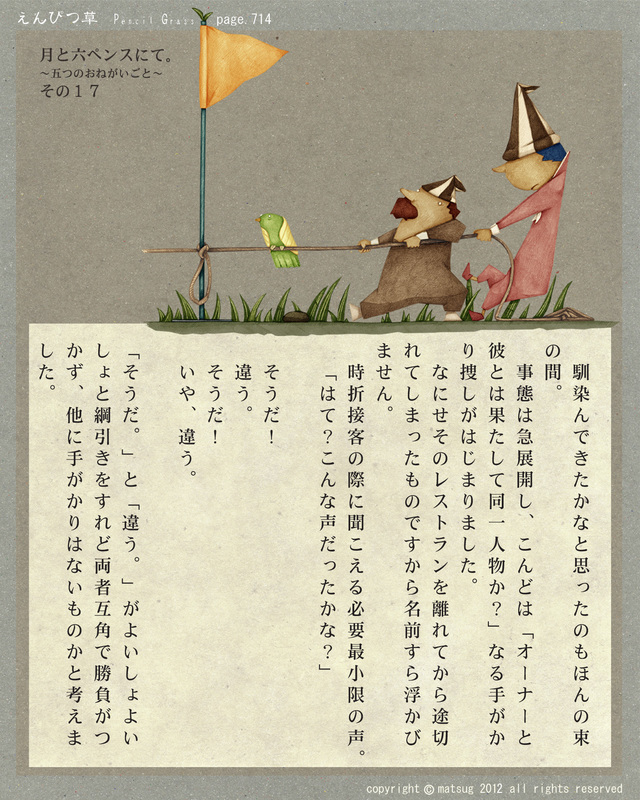 えんぴつ草 Pencil Grass page.714
月と六ペンスにて。
～五つのおねがいごと～
その１７
馴染んできたかなと思ったのもほんの束
の間。
事態は急展開し、こんどは「オーナーと
彼とは果たして同一人物か？」なる手がか
り捜しがはじまりました。
なにせそのレストランを離れてから途切
れてしまったものですから名前すら浮かび
ません。
時折接客の際に聞こえる必要最小限の声。
「はて？こんな声だったかな？」
そうだ！
違う。
そうだ！
いや、違う。
「そうだ。」と「違う。」がよいしょよい
しょと綱引きをすれど両者互角で勝負がつ
かず、他に手がかりはないものかと考えま
した。
copyright © matsug 2012 all rights reserved